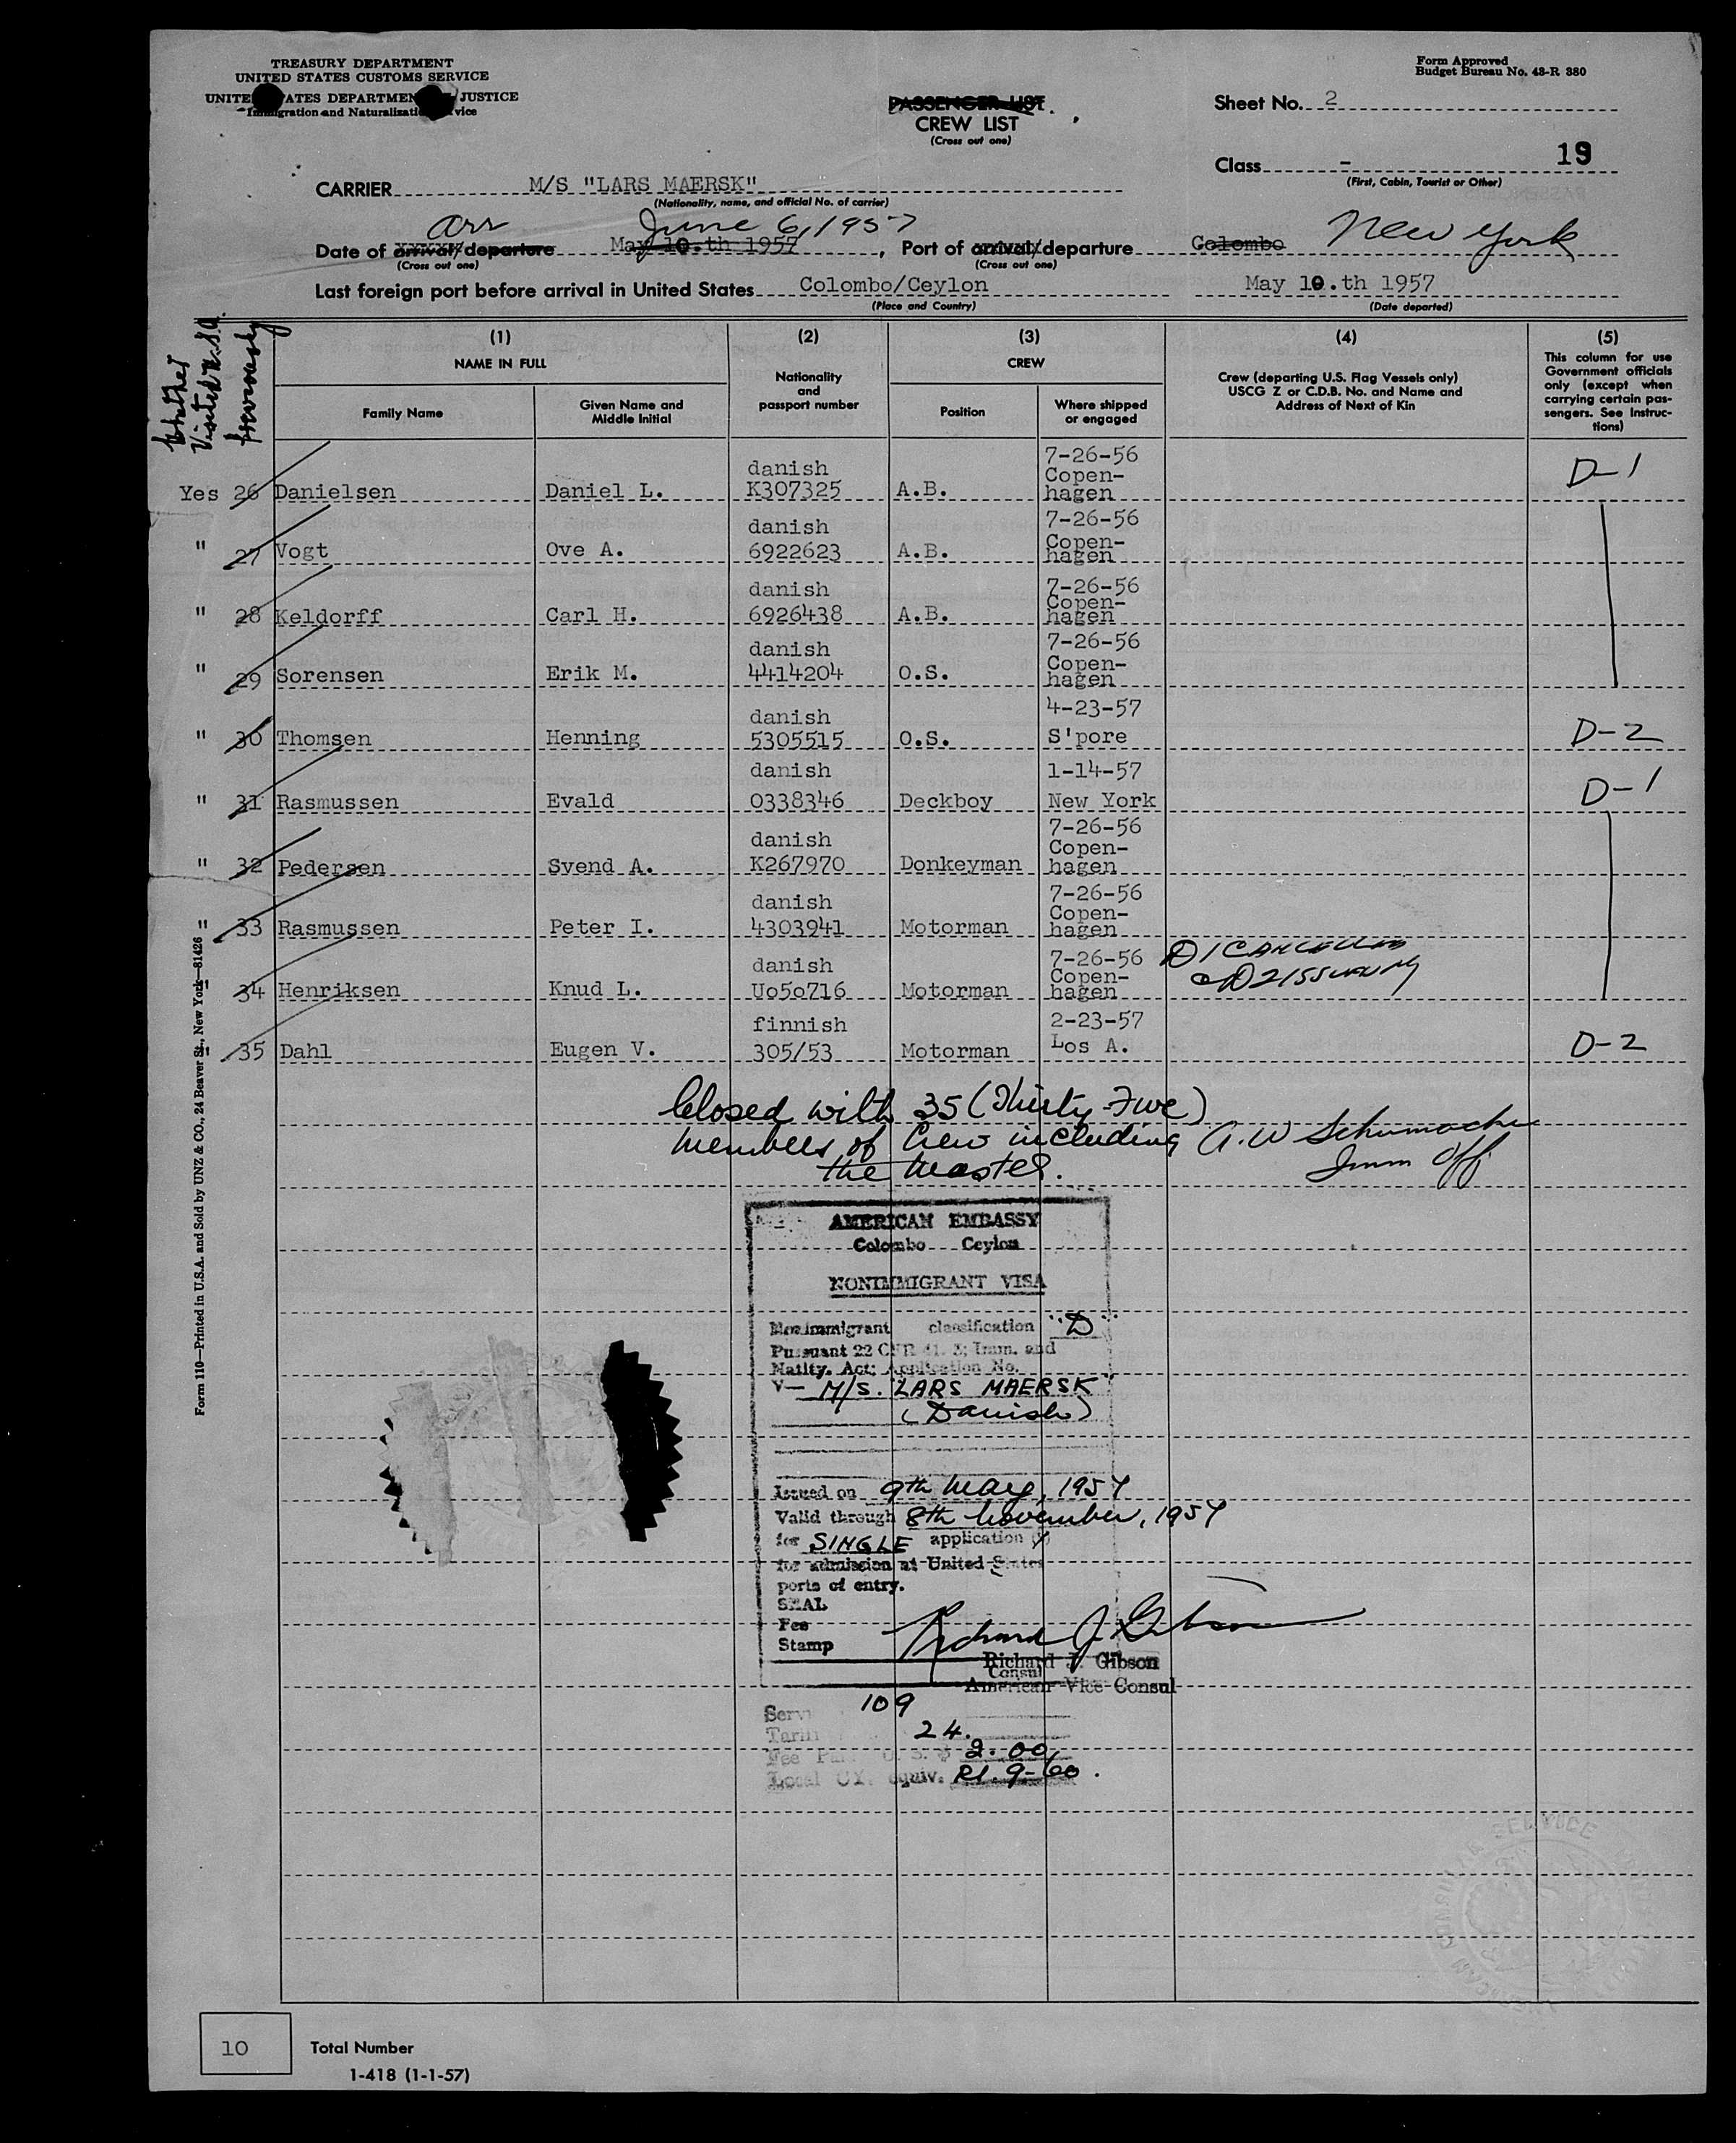 TREASURY DEPARTMENT
UNITED STATES CUSTOMS SERVICE
UNITE ATES DEPARTMEN JUSTICE
Immigration and Naturalizati vice
Form Approved
Budget Bureau No. 43-R 380
PASSENGER LIST
CREW LIST
(Cross out one)
Sheet No. 2
Class -
19
(First, Cabin, Tourist or Other)
CARRIER M/S "LARS MAERSK"
(Nationality, name, and official No. of carrier)
arr June 6, 1957 New York
Date of arrival/departure May 10.th 1957, Port of arrival/departure Colombo
(Cross out one) (Cross out one)
Last foreign port before arrival in United States Colombo/Ceylon May 10.th 1957
(Place and Country) (Date departed)
Whether Visited U.S.A. previously
(1) (2) (3) (4) (5)
NAME IN FULL
Family Name
Given Name and Middle Initial
Nationality and passport number
CREW
Position
Where shipped or engaged
Crew (departing U.S. Flag Vessels only)
USCG Z or C.D.B. No. and Name and
Address of Next of Kin
This column for use
Government officials
only (except when
carrying certain pas-
sengers. See Instruc-
tions)
Yes 26 Danielsen Daniel L. danish K307325 A.B. 7-26-56 Copen-hagen D-1
" 27 Vogt Ove A. danish 6922623 A.B. 7-26-56 Copen-hagen
" 28 Keldorff Carl H. danish 6926438 A.B. 7-26-56 Copen-hagen
" 29 Sorensen Erik M. danish 4414204 O.S. 7-26-56 Copen-hagen
" 30 Thomsen Henning danish 5305515 O.S. 4-23-57 S'pore D-2
" 31 Rasmussen Evald danish 0338346 Deckboy 1-14-57 New York D-1
" 32 Pedersen Svend A. danish K267970 Donkeyman 7-26-56 Copen-hagen
" 33 Rasmussen Peter I. danish 4303941 Motorman 7-26-56 Copen-hagen
" 34 Henriksen Knud L. danish Uo5o716 Motorman 7-26-56 Copen-hagen D1 CANCELLED D2 ISSUED
" 35 Dahl Eugen V. finnish 305/53 Motorman 2-23-57 Los A. D-2
Closed with 35 (Thirty-Five)
members of Crew including
the Master.
A. W Schumacher
Imm Off
AMERICAN EMBASSY
Colombo Ceylon
NONIMMIGRANT VISA
Nonimmigrant classification "D"
Pursuant 22 CFR 41. 3; Imm. and
Natlty. Act; Application No.
V- M/S. LARS MAERSK
(Danish)
Issued on 9th May, 1957
Valid through 8th November, 1957
for SINGLE application
for admission at United States
ports of entry.
SEAL
Fee
Stamp
Richard J. Gibson
Richard J. Gibson
Consul
American Vice Consul
Serv 109
Tariff 24.
Fee Pa U. S. $ 2.00
Local CY. equiv. Rs. 9-60.
Form 110—Printed in U.S.A. and Sold by UNZ & CO., 24 Beaver St., New York—81426
10
Total Number
1-418 (1-1-57)